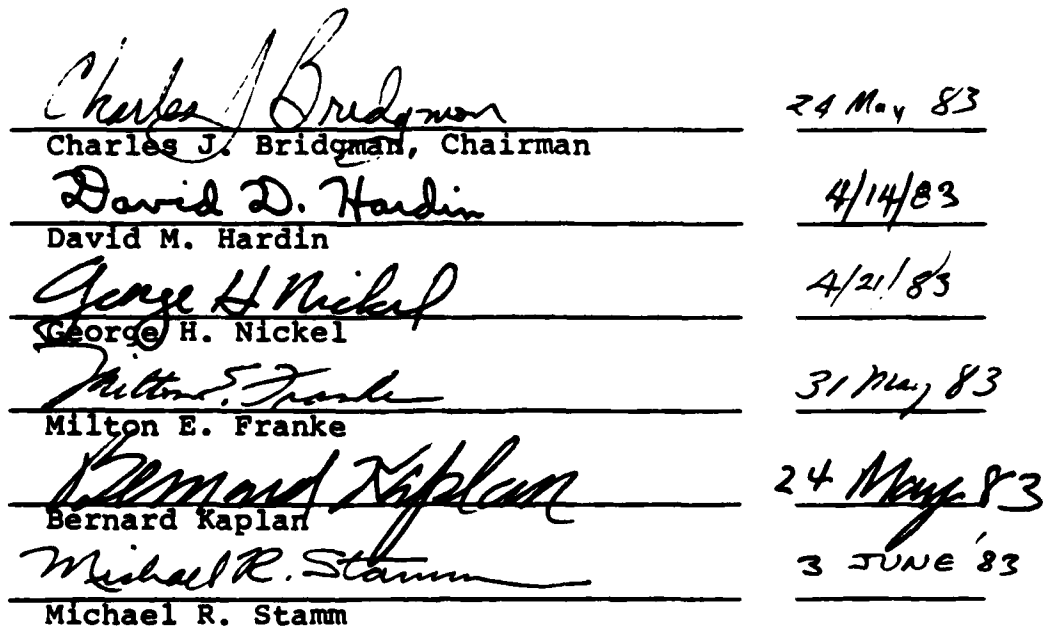 Charles J Bridgman 24 May 83
Charles J. Bridgman, Chairman
David D. Hardin 4/14/83
David M. Hardin
George H Nickel 4/21/83
George H. Nickel
Milton E. Franke 31 May 83
Milton E. Franke
Bernard Kaplan 24 May 83
Bernard Kaplan
Michael R. Stamm 3 JUNE '83
Michael R. Stamm